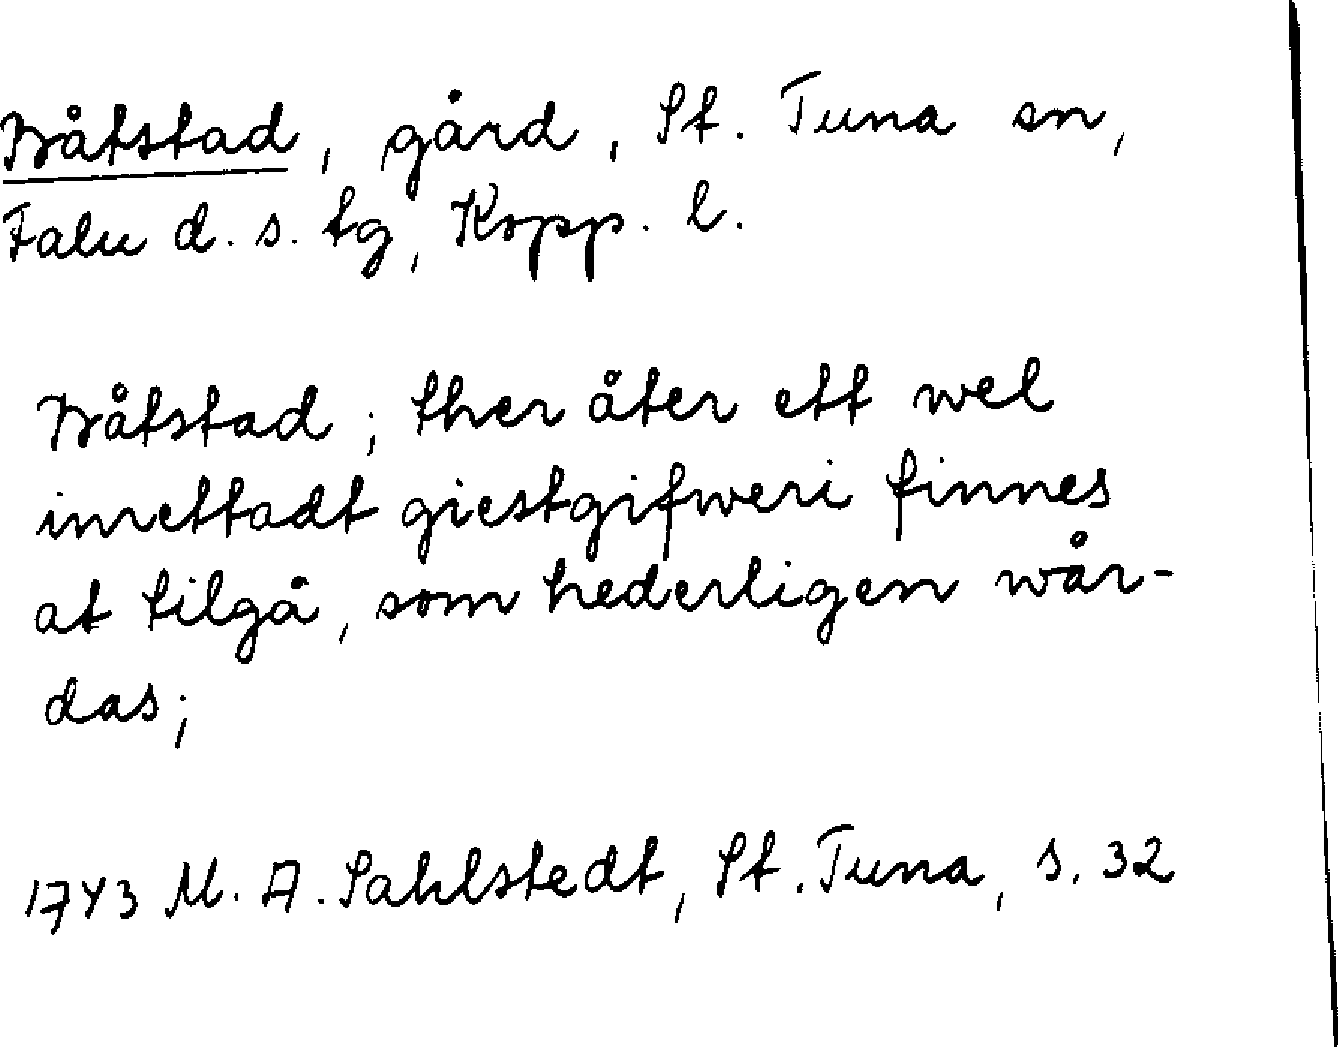 Båtstad, gård, St. Tuna sn,
Falu d. s. tg, Kopp. l.
Båtstad; ther åter ett wel
inrettadt giestgifweri finnes
at tilgå, som hederligen wår-
das;
1743 M. A. Sahlstedt, St. Tuna, s. 32